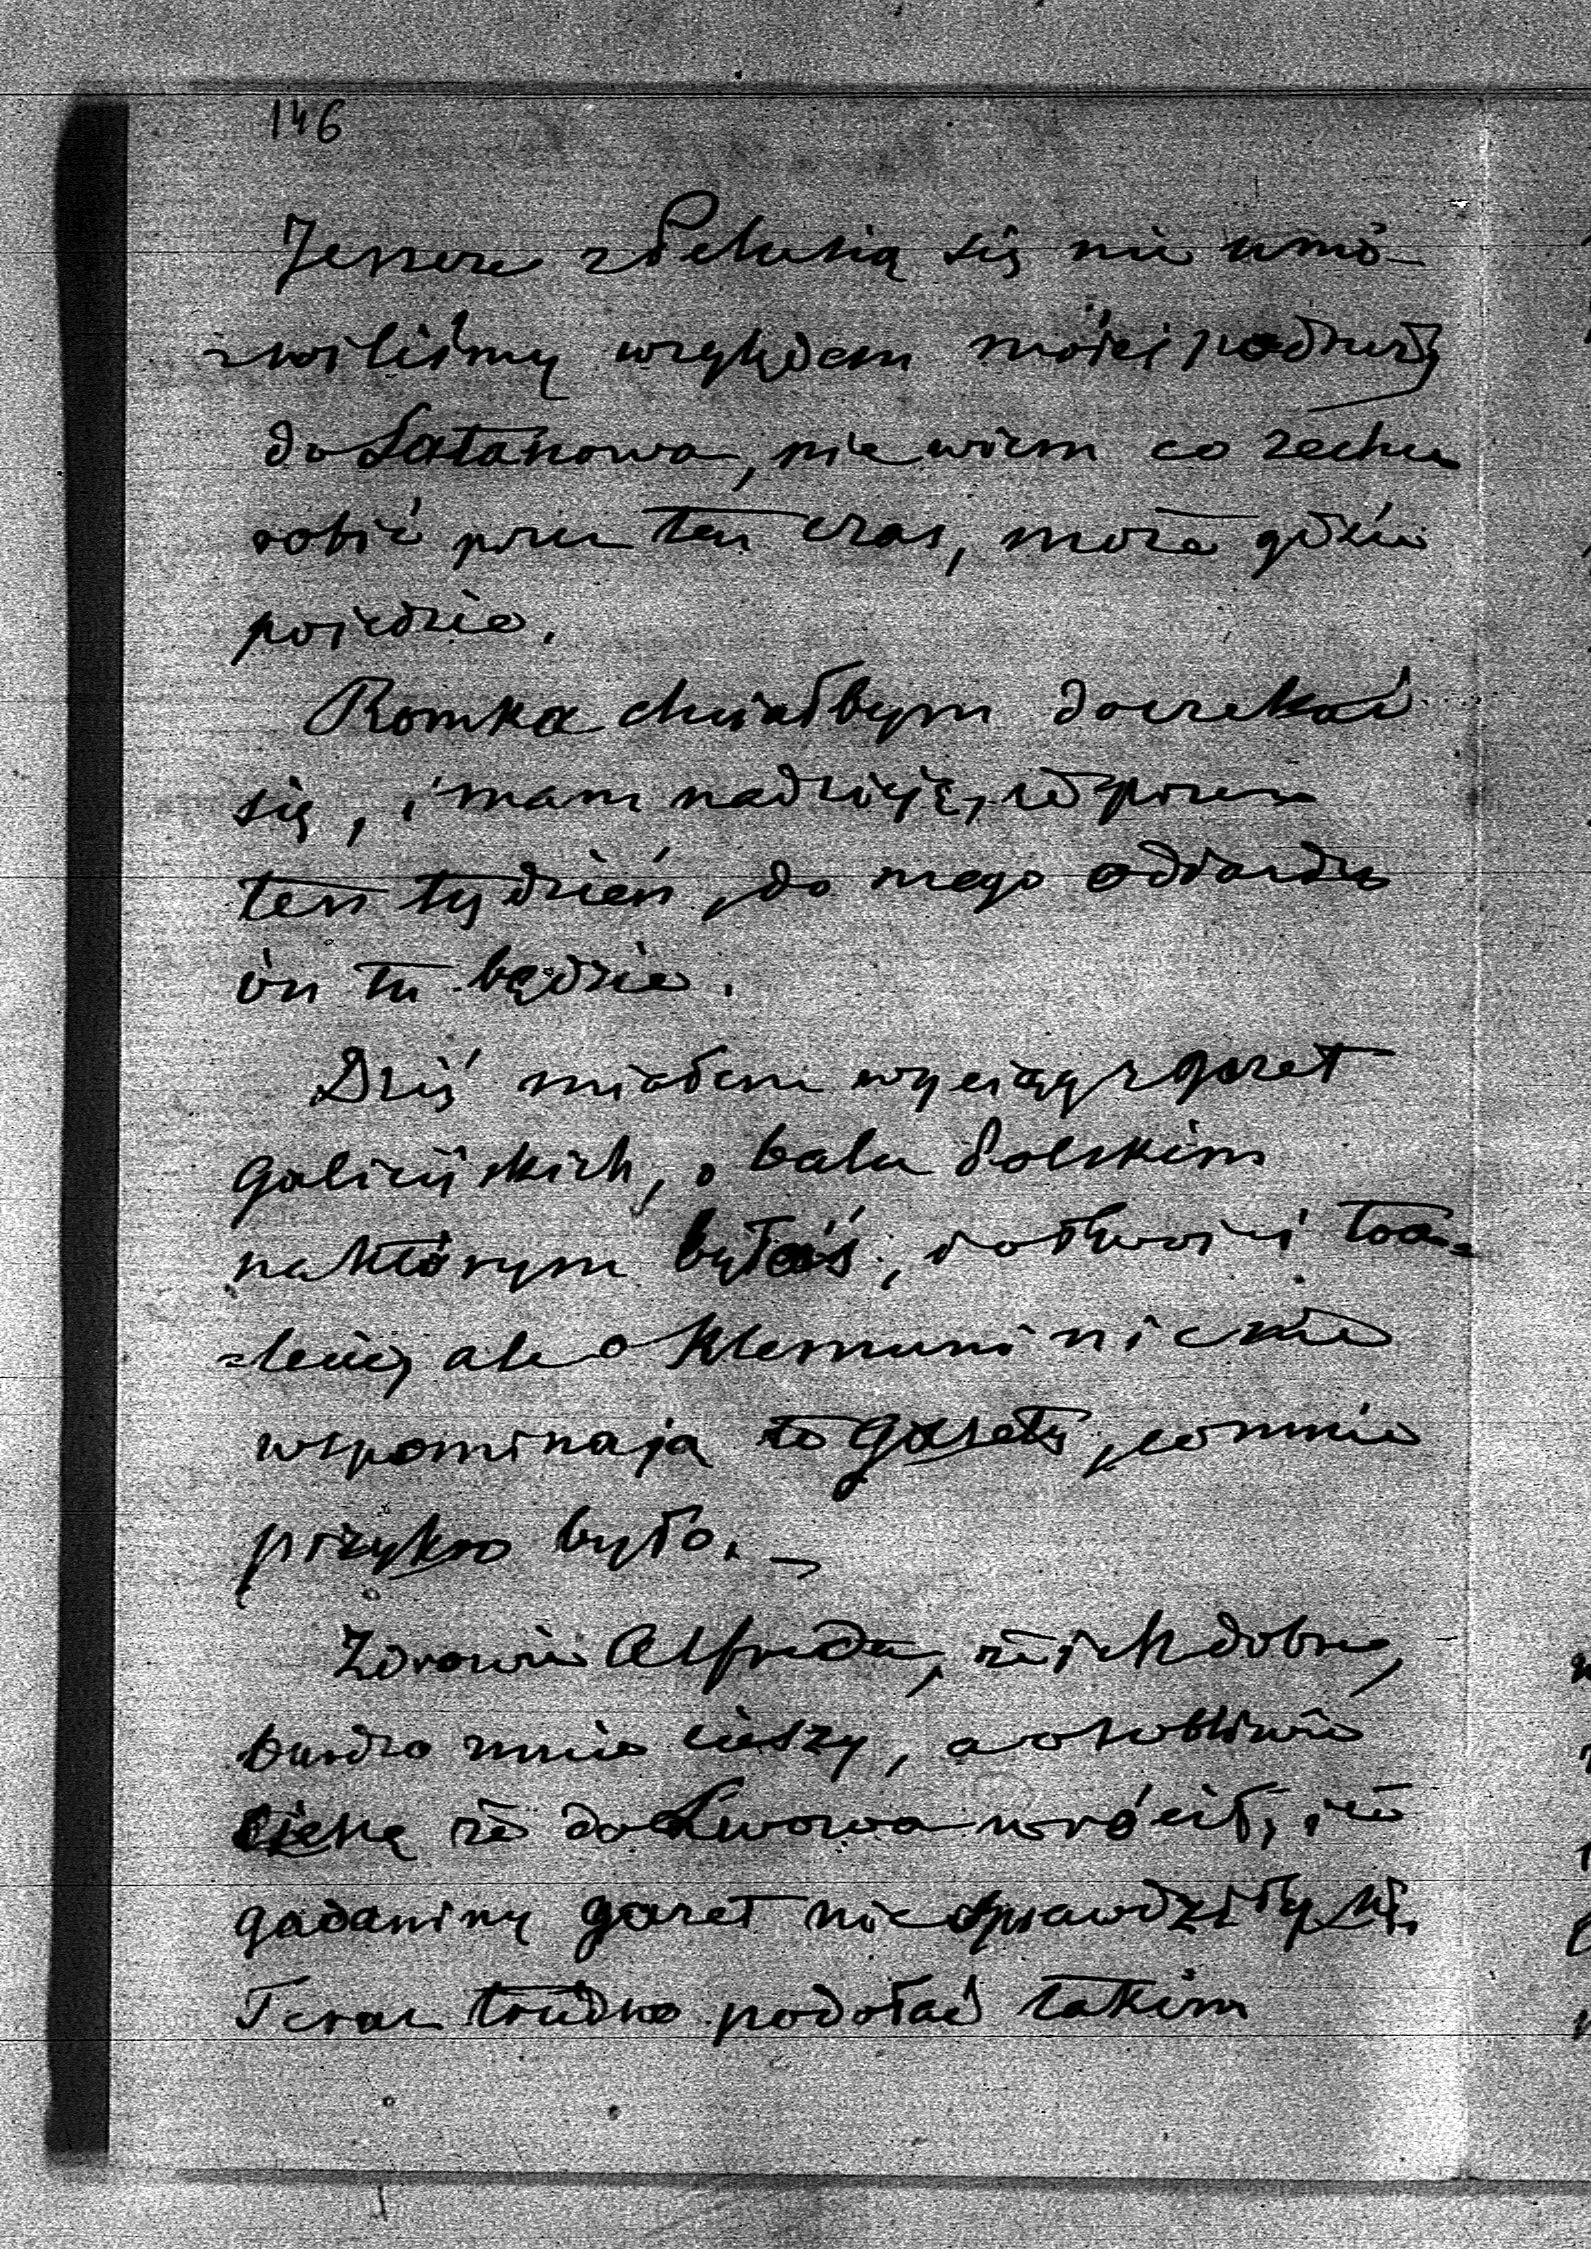 146
Jeszcze z Pelusią się nie umó-
=wiliśmy względem mojej podróży
do Satanowa, nie wiem co zechce
robić przez ten czas, może gdzie
pojedzie.
Romka chciałbym doczekać
się, i mam nadzieję, że przez
ten tydzień, do mego odjazdu
ón tu będzie.
Dziś miałem wyciąg z gazet
galicyjskich, o balu Polskim
na którym byłaś, i toa=
=lecie, ale o Klemuni nic nie
wspominają te gazety, co mnie
przykro było. –
Zdrowie Alfreda, że jest dobre,
bardzo mnie cieszy, a osobliwie
cieszę że do Lwowa wrócił, i że
gadaniny gazet nie sprawdziły się.
Teraz trudno podołać takim